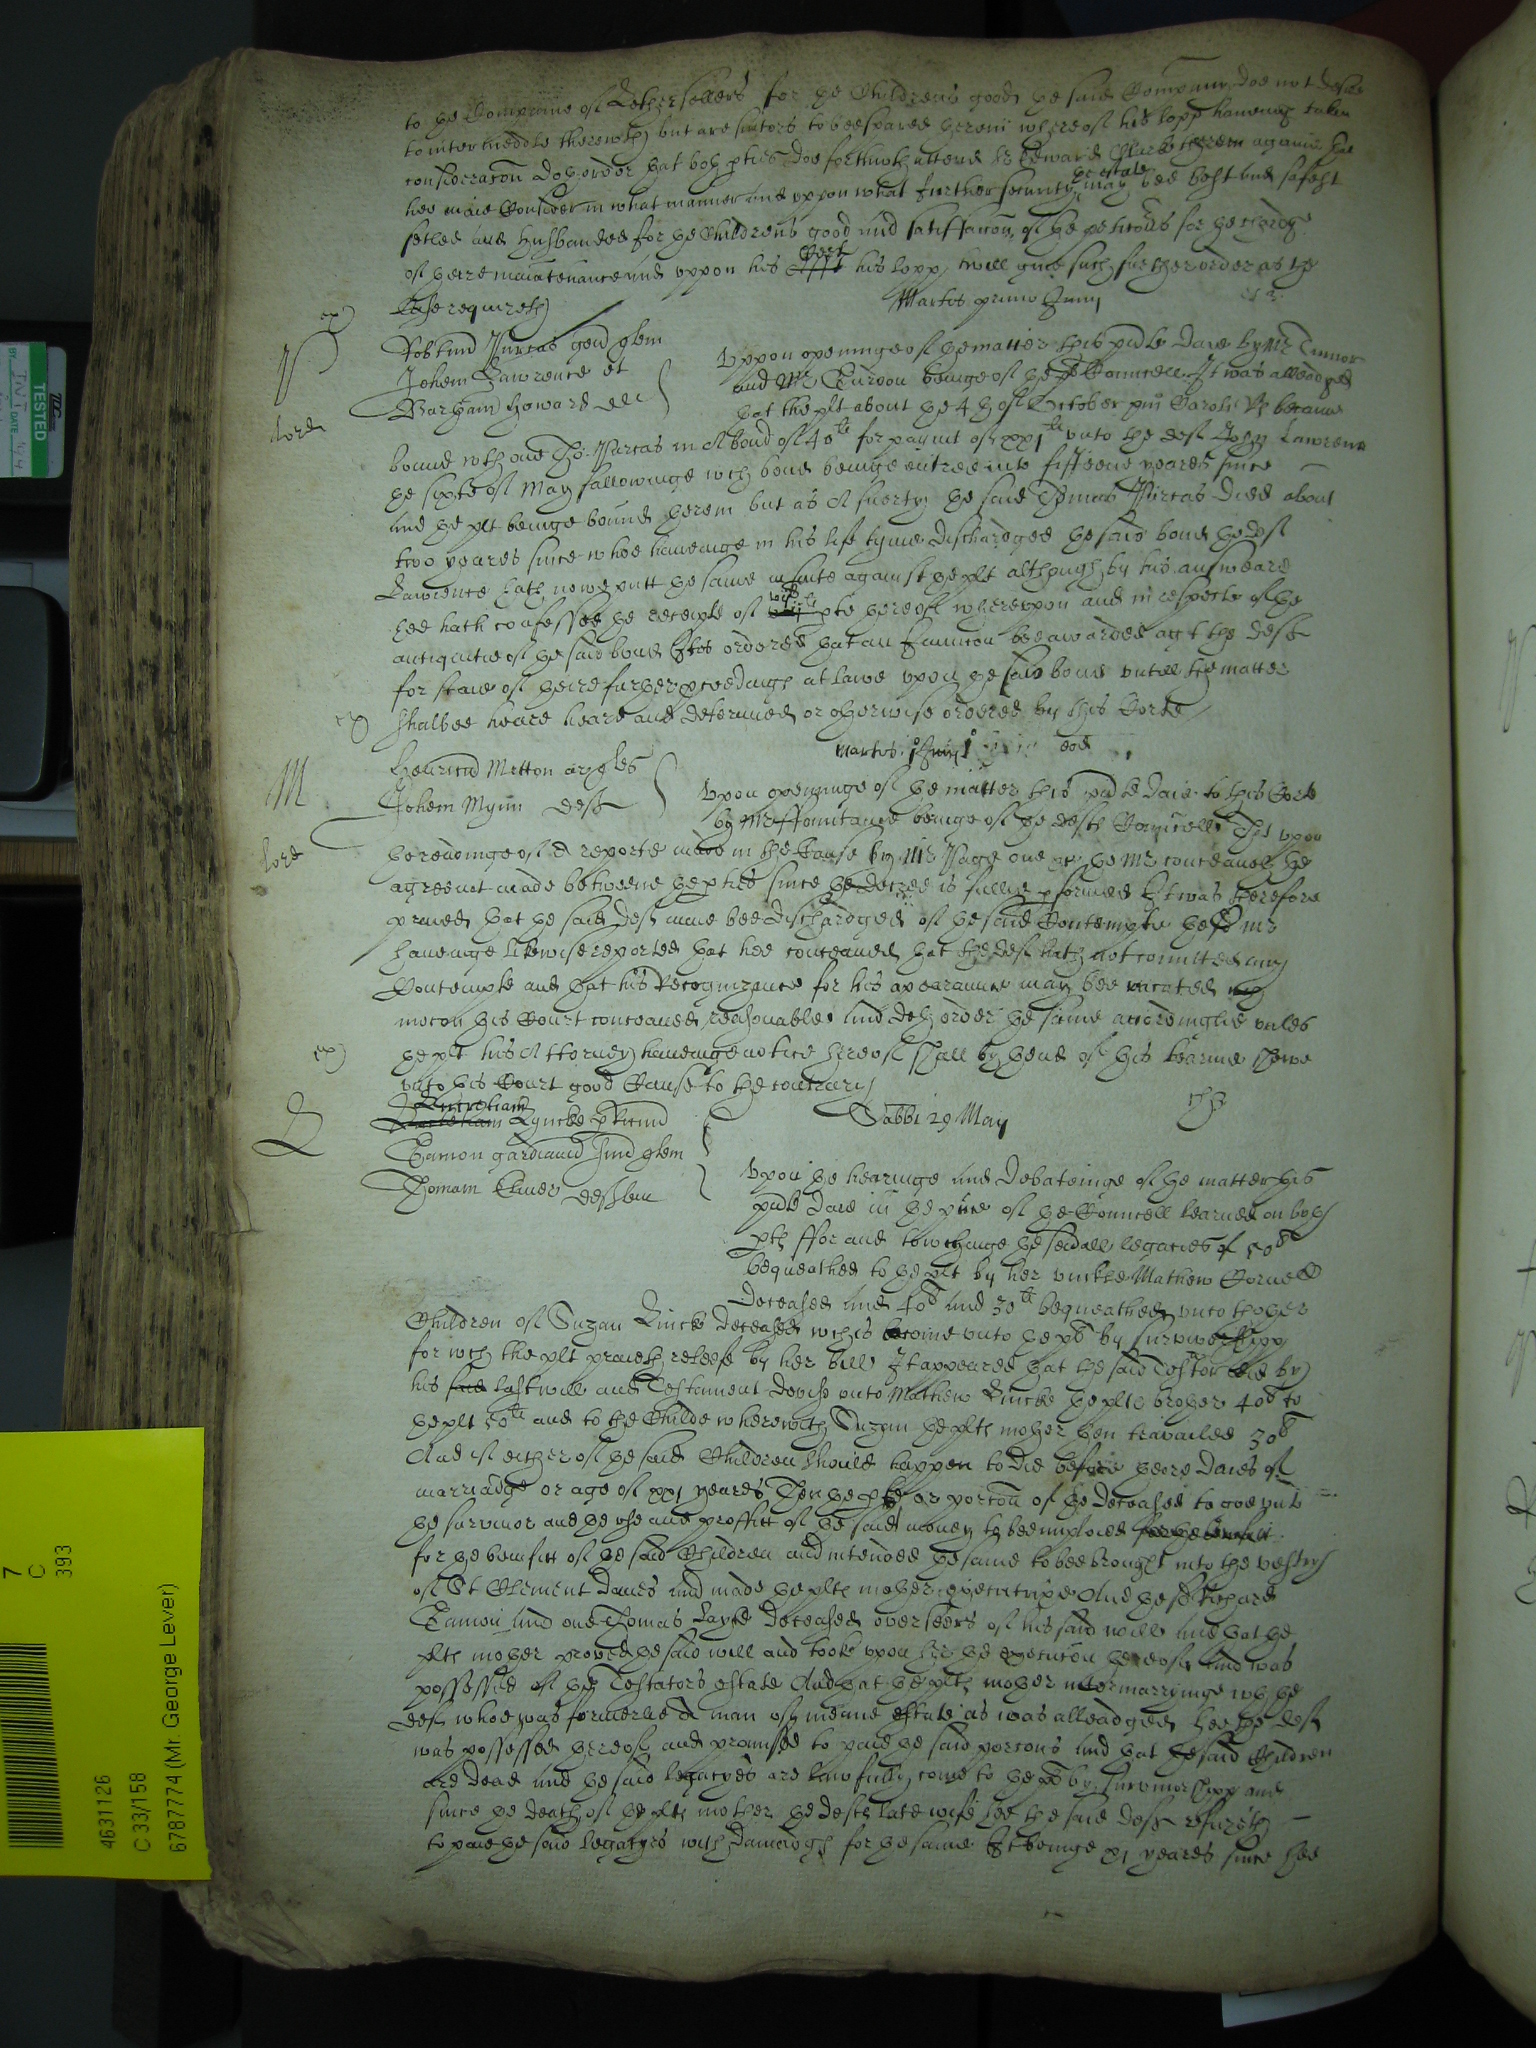 to ye Companie of Lethersellers for ye Childrens good, ye said Company doe not desire
to intermeddle therewth, but are suitors to bee spared herein whereof his lopp haveing taken
consideracon doth order yat both pties doe forthwith attend Sr Edward Clarke therein againe yat
hee maie Consider in what manner and uppon what further security ye estate may bee best and safest
setled and husbanded for ye Childrens good and satisfaccon of ye petitors for ye charge
of theire maintenance and uppon his Cert his lopp will give such further order as the
Case requireth
Martis primo Junij
Purcas gen quem
Johem Lawrence et
Howard def
Uppon openinge of ye matter this pnte daie by Mr Turnor
and Mr beinge of ye Councell It was alleadged
yat the plt about ye 4th of October Caroli Rs became
bound wth one Tho: Purcas in A bond of 40li for paymt of xxjli unto the def John Lawrence
ye sixte of May followinge wch bond beinge entred into fifteene yeares since
and ye plt beinge bound herein but as A suerty ye said Thomas Purcas died about
two yeares since whoe haveinge in his life tyme discharged ye said bond ye def
Lawrence hath nowe putt ye same in suite against ye plt although by his answeare
hee hath confessed ye receipte of pte thereof whereupon and in respecte of ye
antiquitie of ye said bond It is ordered yat an Iniuncon bee awarded agt the defts
for staie of theire further pceedings at lawe upon ye said bond untill the matter
shalbee heard heard and determined or otherwise ordered by this Corte
Martis Junij
Mitton ar quer
Johem Mynn deft
Upon openinge of ye matter this pnte daie to this Corte
by Mr ffountayne beinge of ye defts Councell That upon
ye readinge of A reporte made in the Cause by Mr Page one of ye Mrs conceaved ye
agreemt made betweene ye pties since ye decree is fullie pformed It was therefore
praied yat ye said deft maie bee discharged of ye said Contempte ye sd mr
haveinge likewise reported yat hee conceaved yat the deft hath not comitted any
Contempte and yat his Recognizance for his apearance may bee vacated
mocon this Court conceaved reasonable and doth order ye same accordinglie unles
ye plt his Attorney haveinge notice hereof shall by thend of this tearme shewe
unto this Court good Cause to the contrary
Lyncke p Ricum
Eamon gardianu suu quem
Thomam Elmer deftem
Sabbi 29 May
Upon ye hearinge and debateinge of ye matter this
pnte daie in ye pnce of ye Councell learned on both
pts ffor and towchinge ye seuall legacies of 50li
bequeathed to ye plt by her unckle Mathew
deceased and 40li and 30li bequeathed unto thother
Children of Suzan Lincke deceased wch is come unto ye plt by survivorshipp
for wch the plt praieth releefe by her bill It appeared yat the said Testor did by
his last will and Testament devise unto Mathew Lincke ye plts brother 40li to
ye plt 50li and to the Childe wherewith Suzan ye plts mother then travailed 30li
And if either of ye said Children should happen to die before theire daies of
marriadge or age of xxj yeares Then ye pte or porcon of ye deceased to goe unto
ye survivor and ye use and proffitt of ye said money to bee imploied
for ye benefitt of ye said Children and intended ye same to bee brought into the vestry
of St Clement Danes and made ye plts mother executrixe And ye sd Richard
Eamon and one Thomas deceased overseers of his said will and yat ye
plts mother proved ye said will and took upon her ye execucon thereof and was
possessed of the Testators estate And yat ye plts mother intermarryinge wth ye
deft whoe was formerlie A man of meane estate as was alleadged hee the deft
was possessed thereof and promised to paie ye said porcons and yat ye said Children
are dead and ye said legacyes are lawfully come to ye plt by survivorshipp and
since ye death of ye plts mother ye defts late wife hee the said deft refuseth
to paie ye said legacyes with damadge for ye same It beinge xj yeares since hee
TESTED
BY
DATE
7
C
393
4631126
C 33/158
6787774 (Mr. George Lever)